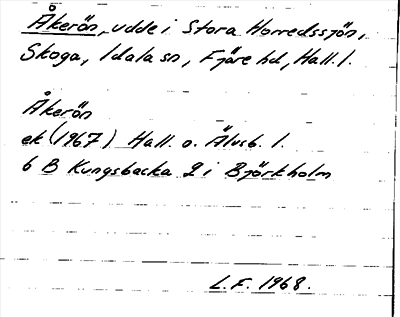 Åkerön, udde i Stora Horredssjön,
Skoga, Idala sn, Fjäre hd, Hall. l.
Åkerön
ek (1967) Hall. o. Älvsb. l.
6 B Kungsbacka 2 i Björkholm
L.F. 1968.